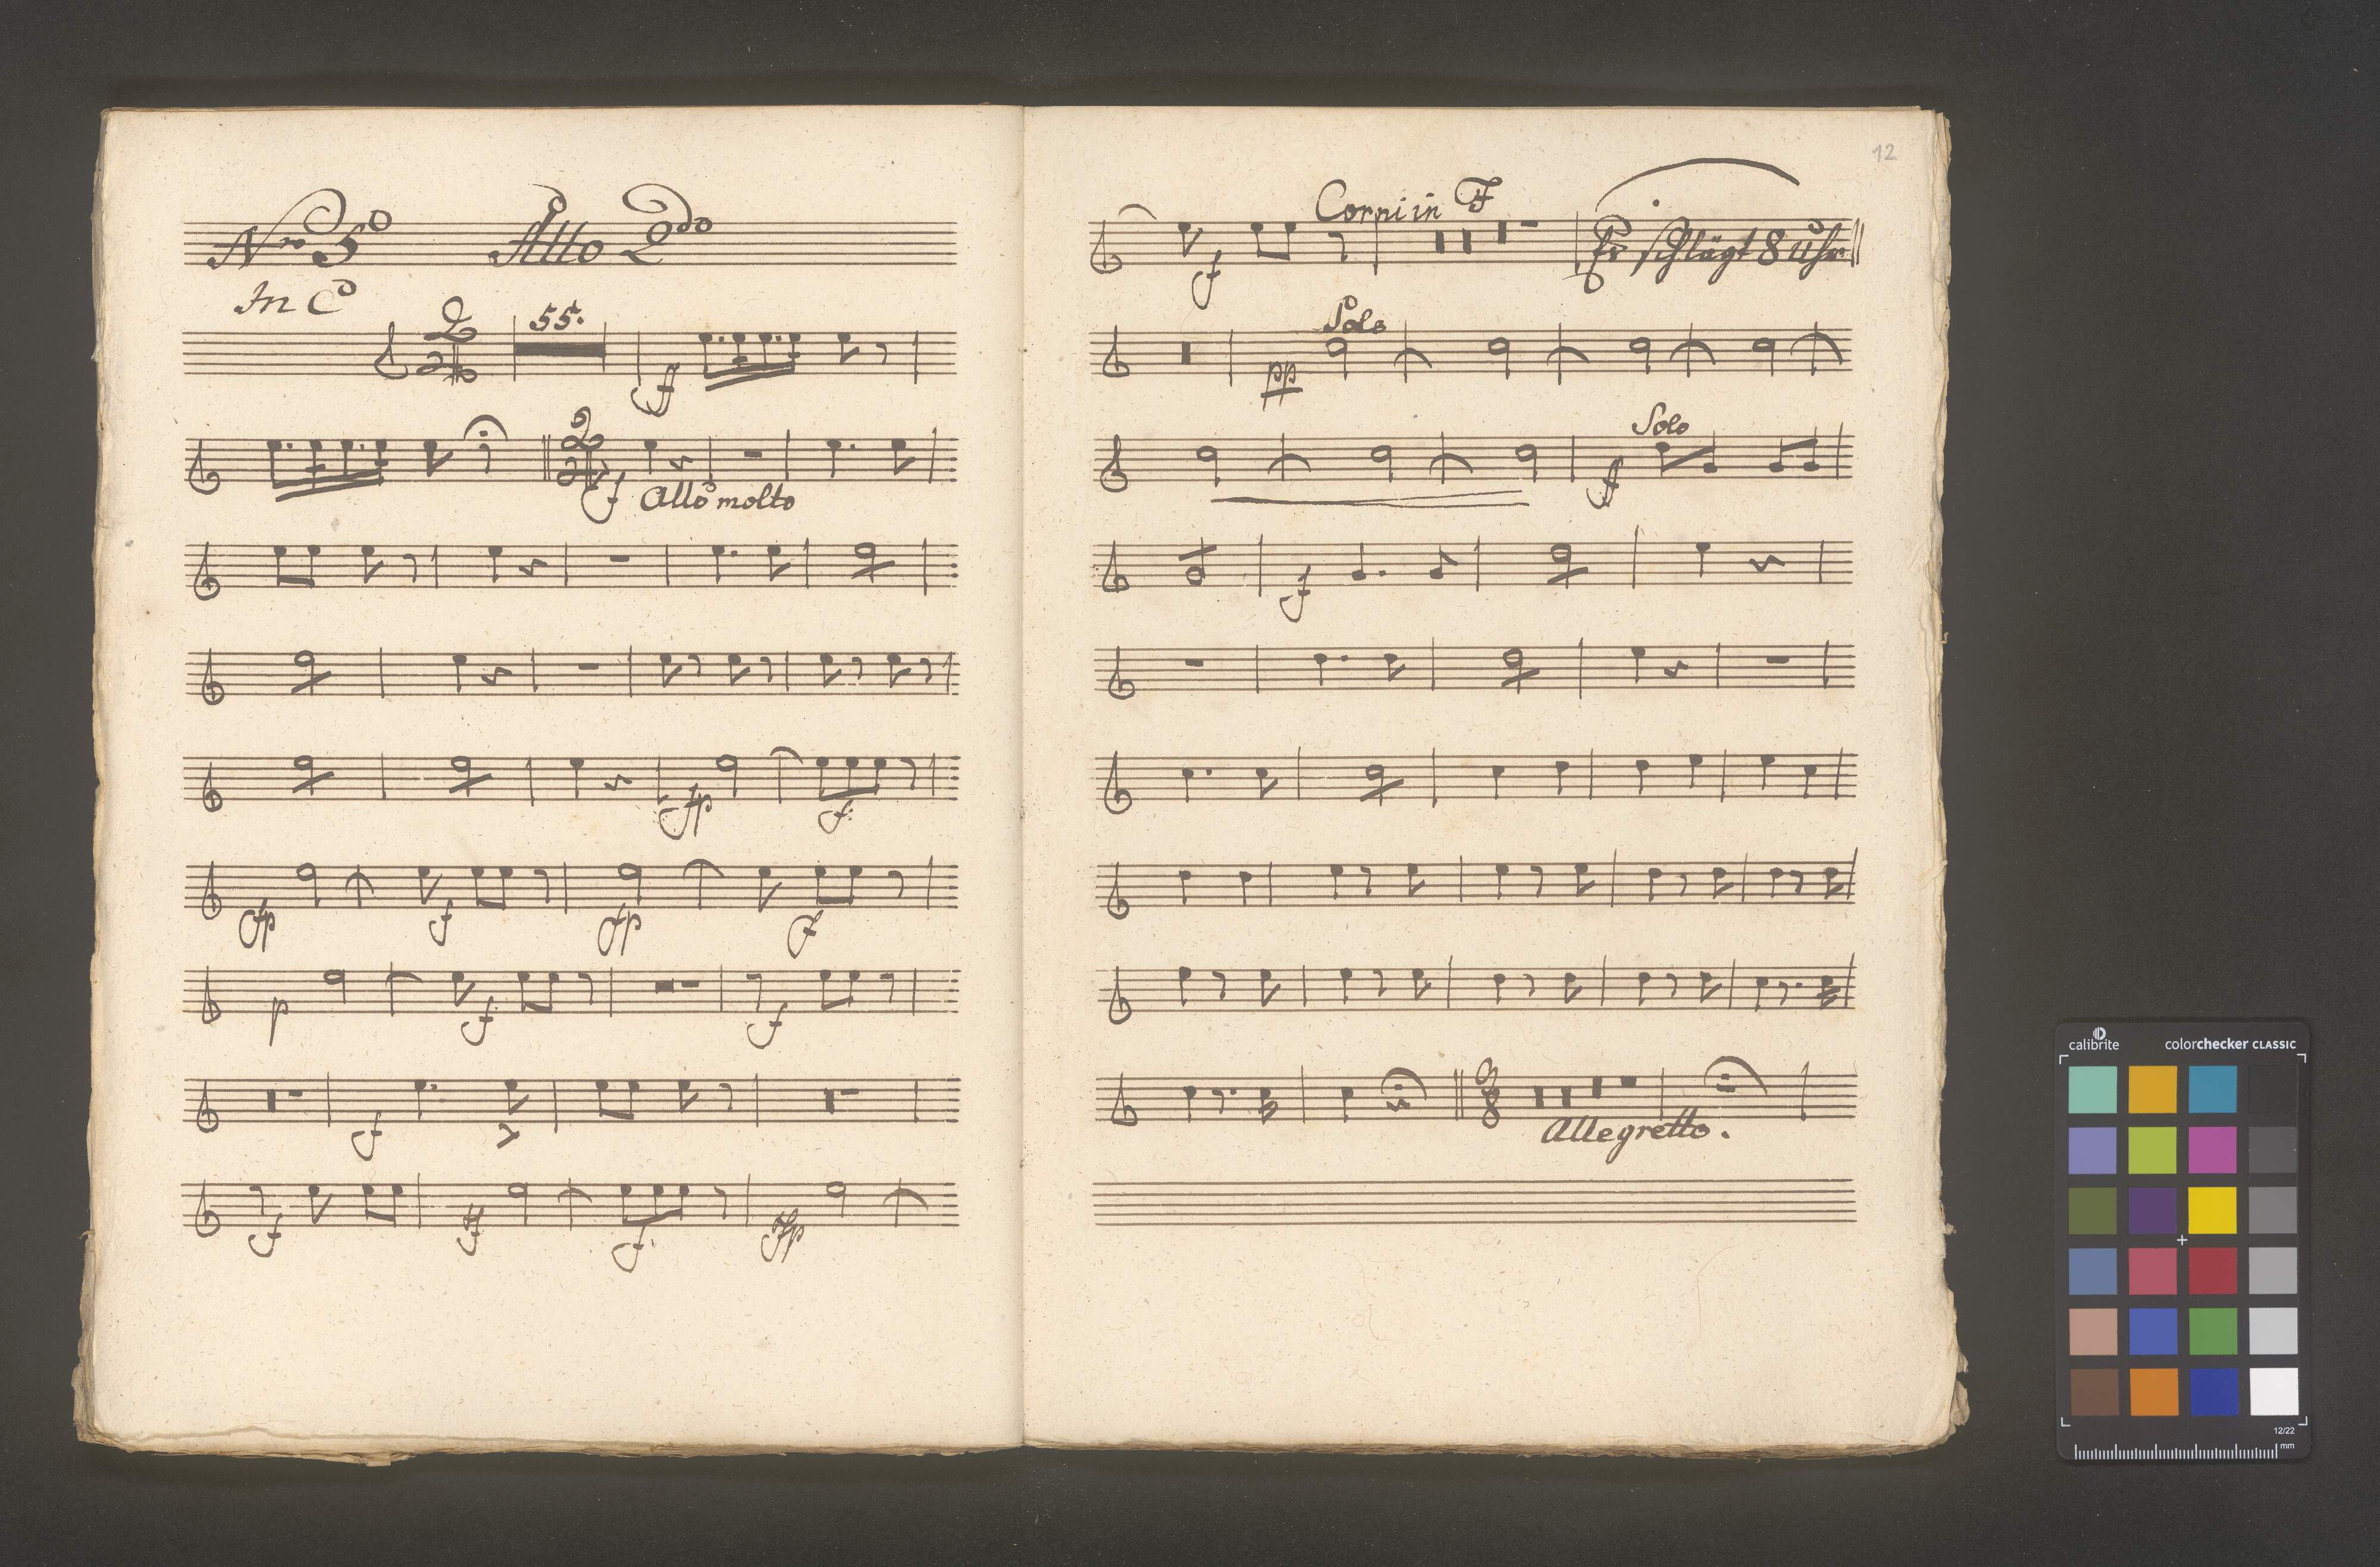 Nro 5to Atto 2do
In C
2 55. ff
2 f Allo molto
fp f
fp f fp f
p f f
f >
f ff f fp
12
f Corni in F Es schlägt 8 uhr
Solo
pp
Solo
ff
f
Allegretto.
calibrite colorchecker CLASSIC
12/22
mm